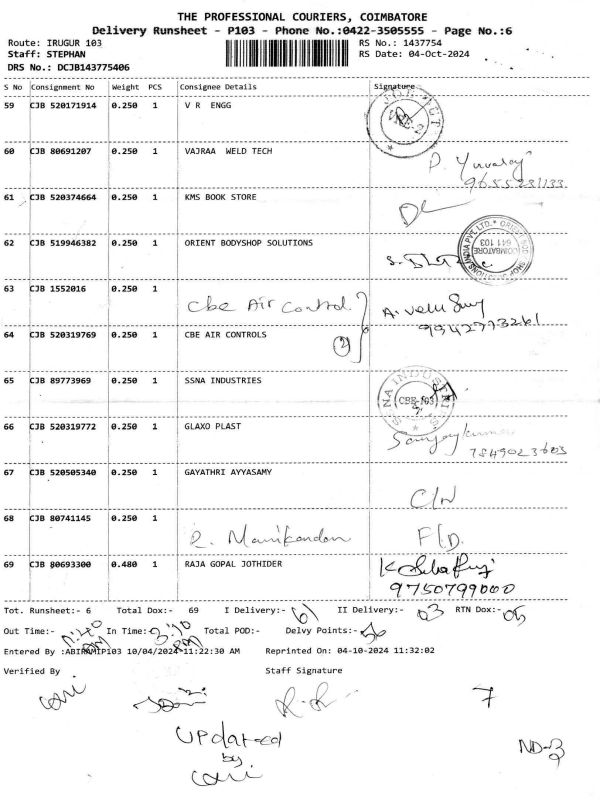 THE PROFESSIONAL COURIERS, COIMBATORE
Delivery Runsheet - P103 - Phone No.:0422-3505555 - Page No.:6
Route: IRUGUR 103 RS No.: 1437754
Staff: STEPHAN RS Date: 04-Oct-2024
DRS No.: DCJB143775406
S No Consignment No Weight PCS Consignee Details Signature
59 CJB 520171914 0.250 1 V R ENGG
60 CJB 80691207 0.250 1 VAJRAA WELD TECH
P. Yuvaraj
9655231133
61 CJB 520374664 0.250 1 KMS BOOK STORE
62 CJB 519946382 0.250 1 ORIENT BODYSHOP SOLUTIONS
COIMBATORE
641 103
63 CJB 1552016 0.250 1
Cbe Air Control. A. Velu Samy
9942773261
64 CJB 520319769 0.250 1 CBE AIR CONTROLS
(2)
65 CJB 89773969 0.250 1 SSNA INDUSTRIES
CBE-103
66 CJB 520319772 0.250 1 GLAXO PLAST
Sanjaykumar
7849023603
67 CJB 520505340 0.250 1 GAYATHRI AYYASAMY
C/N
68 CJB 80741145 0.250 1
R. Manikandan F/D.
69 CJB 80693300 0.480 1 RAJA GOPAL JOTHIDER
9750799000
Tot. Runsheet:- 6 Total Dox:- 69 I Delivery:- 61 II Delivery:- 03 RTN Dox:- 05
Out Time:- 11:40 AM In Time:- 3:10 PM Total POD:- Delvy Points:- 56
Entered By :ABIRAMIP103 10/04/2024 11:22:30 AM Reprinted On: 04-10-2024 11:32:02
Verified By Staff Signature
7
Updated
by
ND-3